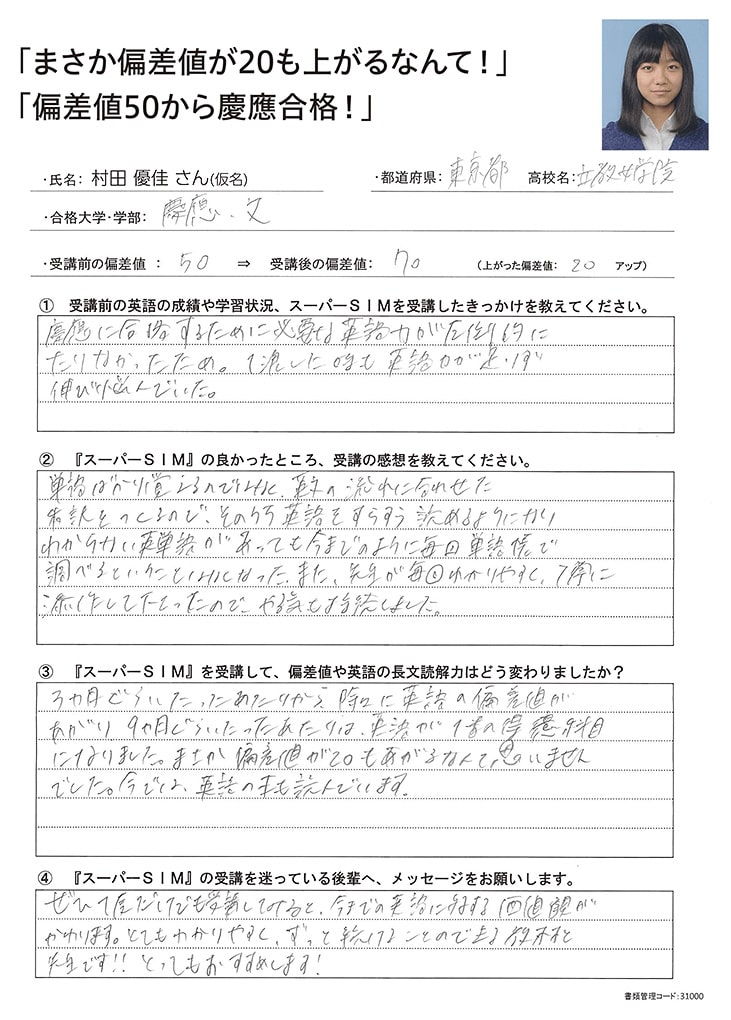 「まさか偏差値が20も上がるなんて！」
「偏差値50から慶應合格！」
・氏名： 村田 優佳 さん(仮名)
・都道府県： 東京都 高校名： 立教女学院
・合格大学・学部： 慶應、文
・受講前の偏差値 ： 50 ⇒ 受講後の偏差値： 70 （上がった偏差値： 20 アップ）
① 受講前の英語の成績や学習状況、スーパーＳＩＭを受講したきっかけを教えてください。
慶應に合格するために必要な英語力が圧倒的に
たりなかったため。1浪した時も英語力が足りず
伸び悩んでいた。
② 『スーパーＳＩＭ』の良かったところ、受講の感想を教えてください。
単語ばかり覚えるのでなく、英文の流れに合わせた
和訳をつくるので、そのうち英語をすらすら読めるようになり
わからない英単語があっても今までのように毎回単語帳で
調べるということがなくなった。また、先生が毎回わかりやすく、丁寧に
添削して下さったので、やる気も持続しました。
③ 『スーパーＳＩＭ』を受講して、偏差値や英語の長文読解力はどう変わりましたか？
3ヵ月ぐらいたったあたりから 除々に英語の偏差値が
あがり 9ヵ月ぐらいたったあたりは、英語が1番の得意科目
になりました。まさか偏差値が20もあがるなんて思いません
でした。今では、英語の本も読んでいます。
④ 『スーパーＳＩＭ』の受講を迷っている後輩へ、メッセージをお願いします。
ぜひ1度だけでも受講してみると、今までの英語に対する価値観が
かわります。とてもわかりやすく、ずっと続けることのできる教材と
先生です!! とってもおすすめします!
書類管理コード：31000